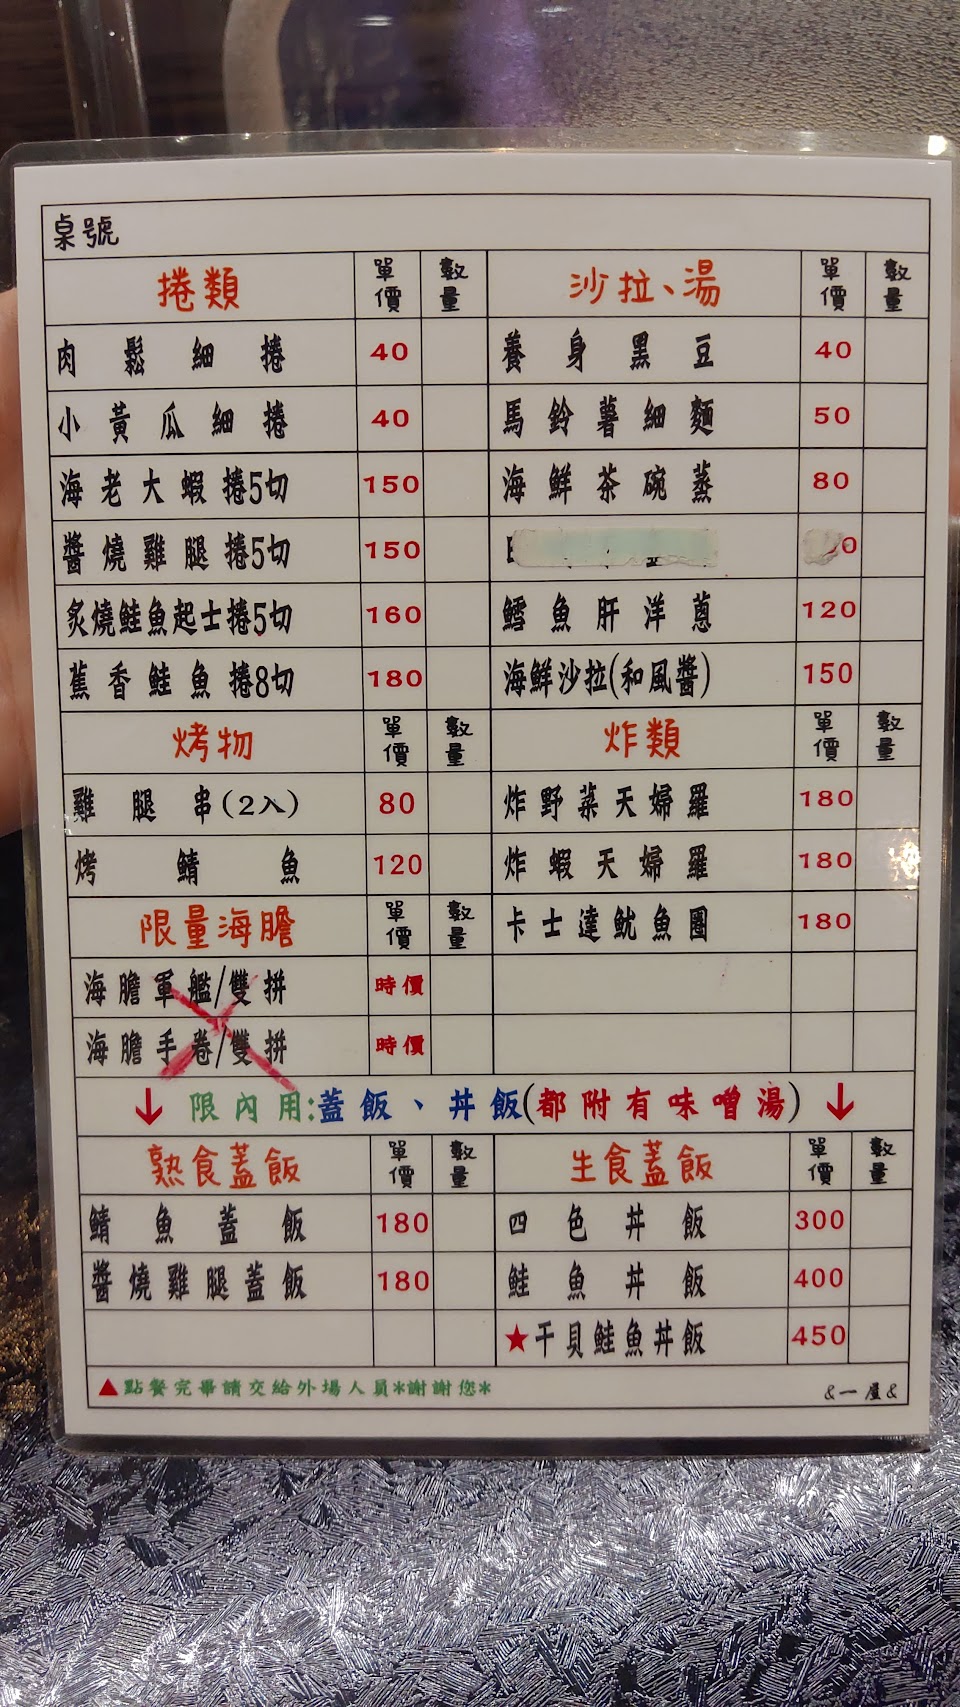 桌號
捲類 單價 數量 沙拉、湯 單價 數量
肉鬆細捲 40 養身黑豆 40
小黃瓜細捲 40 馬鈴薯細麵 50
海老大蝦捲5切 150 海鮮茶碗蒸 80
醬燒雞腿捲5切 150
炙燒鮭魚起士捲5切 160 鱈魚肝洋蔥 120
蕉香鮭魚捲8切 180 海鮮沙拉(和風醬) 150
烤物 單價 數量 炸類 單價 數量
雞腿串(2入) 80 炸野菜天婦羅 180
烤鯖魚 120 炸蝦天婦羅 180
限量海膽 單價 數量 卡士達魷魚圈 180
海膽軍艦/雙拼 時價
海膽手卷/雙拼 時價
↓ 限內用:蓋飯、丼飯(都附有味噌湯) ↓
熟食蓋飯 單價 數量 生食蓋飯 單價 數量
鯖魚蓋飯 180 四色丼飯 300
醬燒雞腿蓋飯 180 鮭魚丼飯 400
★干貝鮭魚丼飯 450
▲點餐完畢請交給外場人員*謝謝您* &一屋&